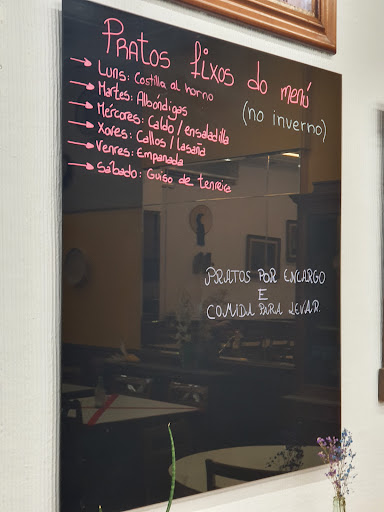 Pratos fixos do menú
(no inverno)
→ Luns: Costilla al horno
→ Martes: Albóndigas
→ Mércores: Caldo / ensaladilla
→ Xoves: Callos / lasaña
→ Venres: Empanada
→ Sábado: Guiso de tenreira
PRATOS POR ENCARGO
E
COMIDA PARA LEVAR.